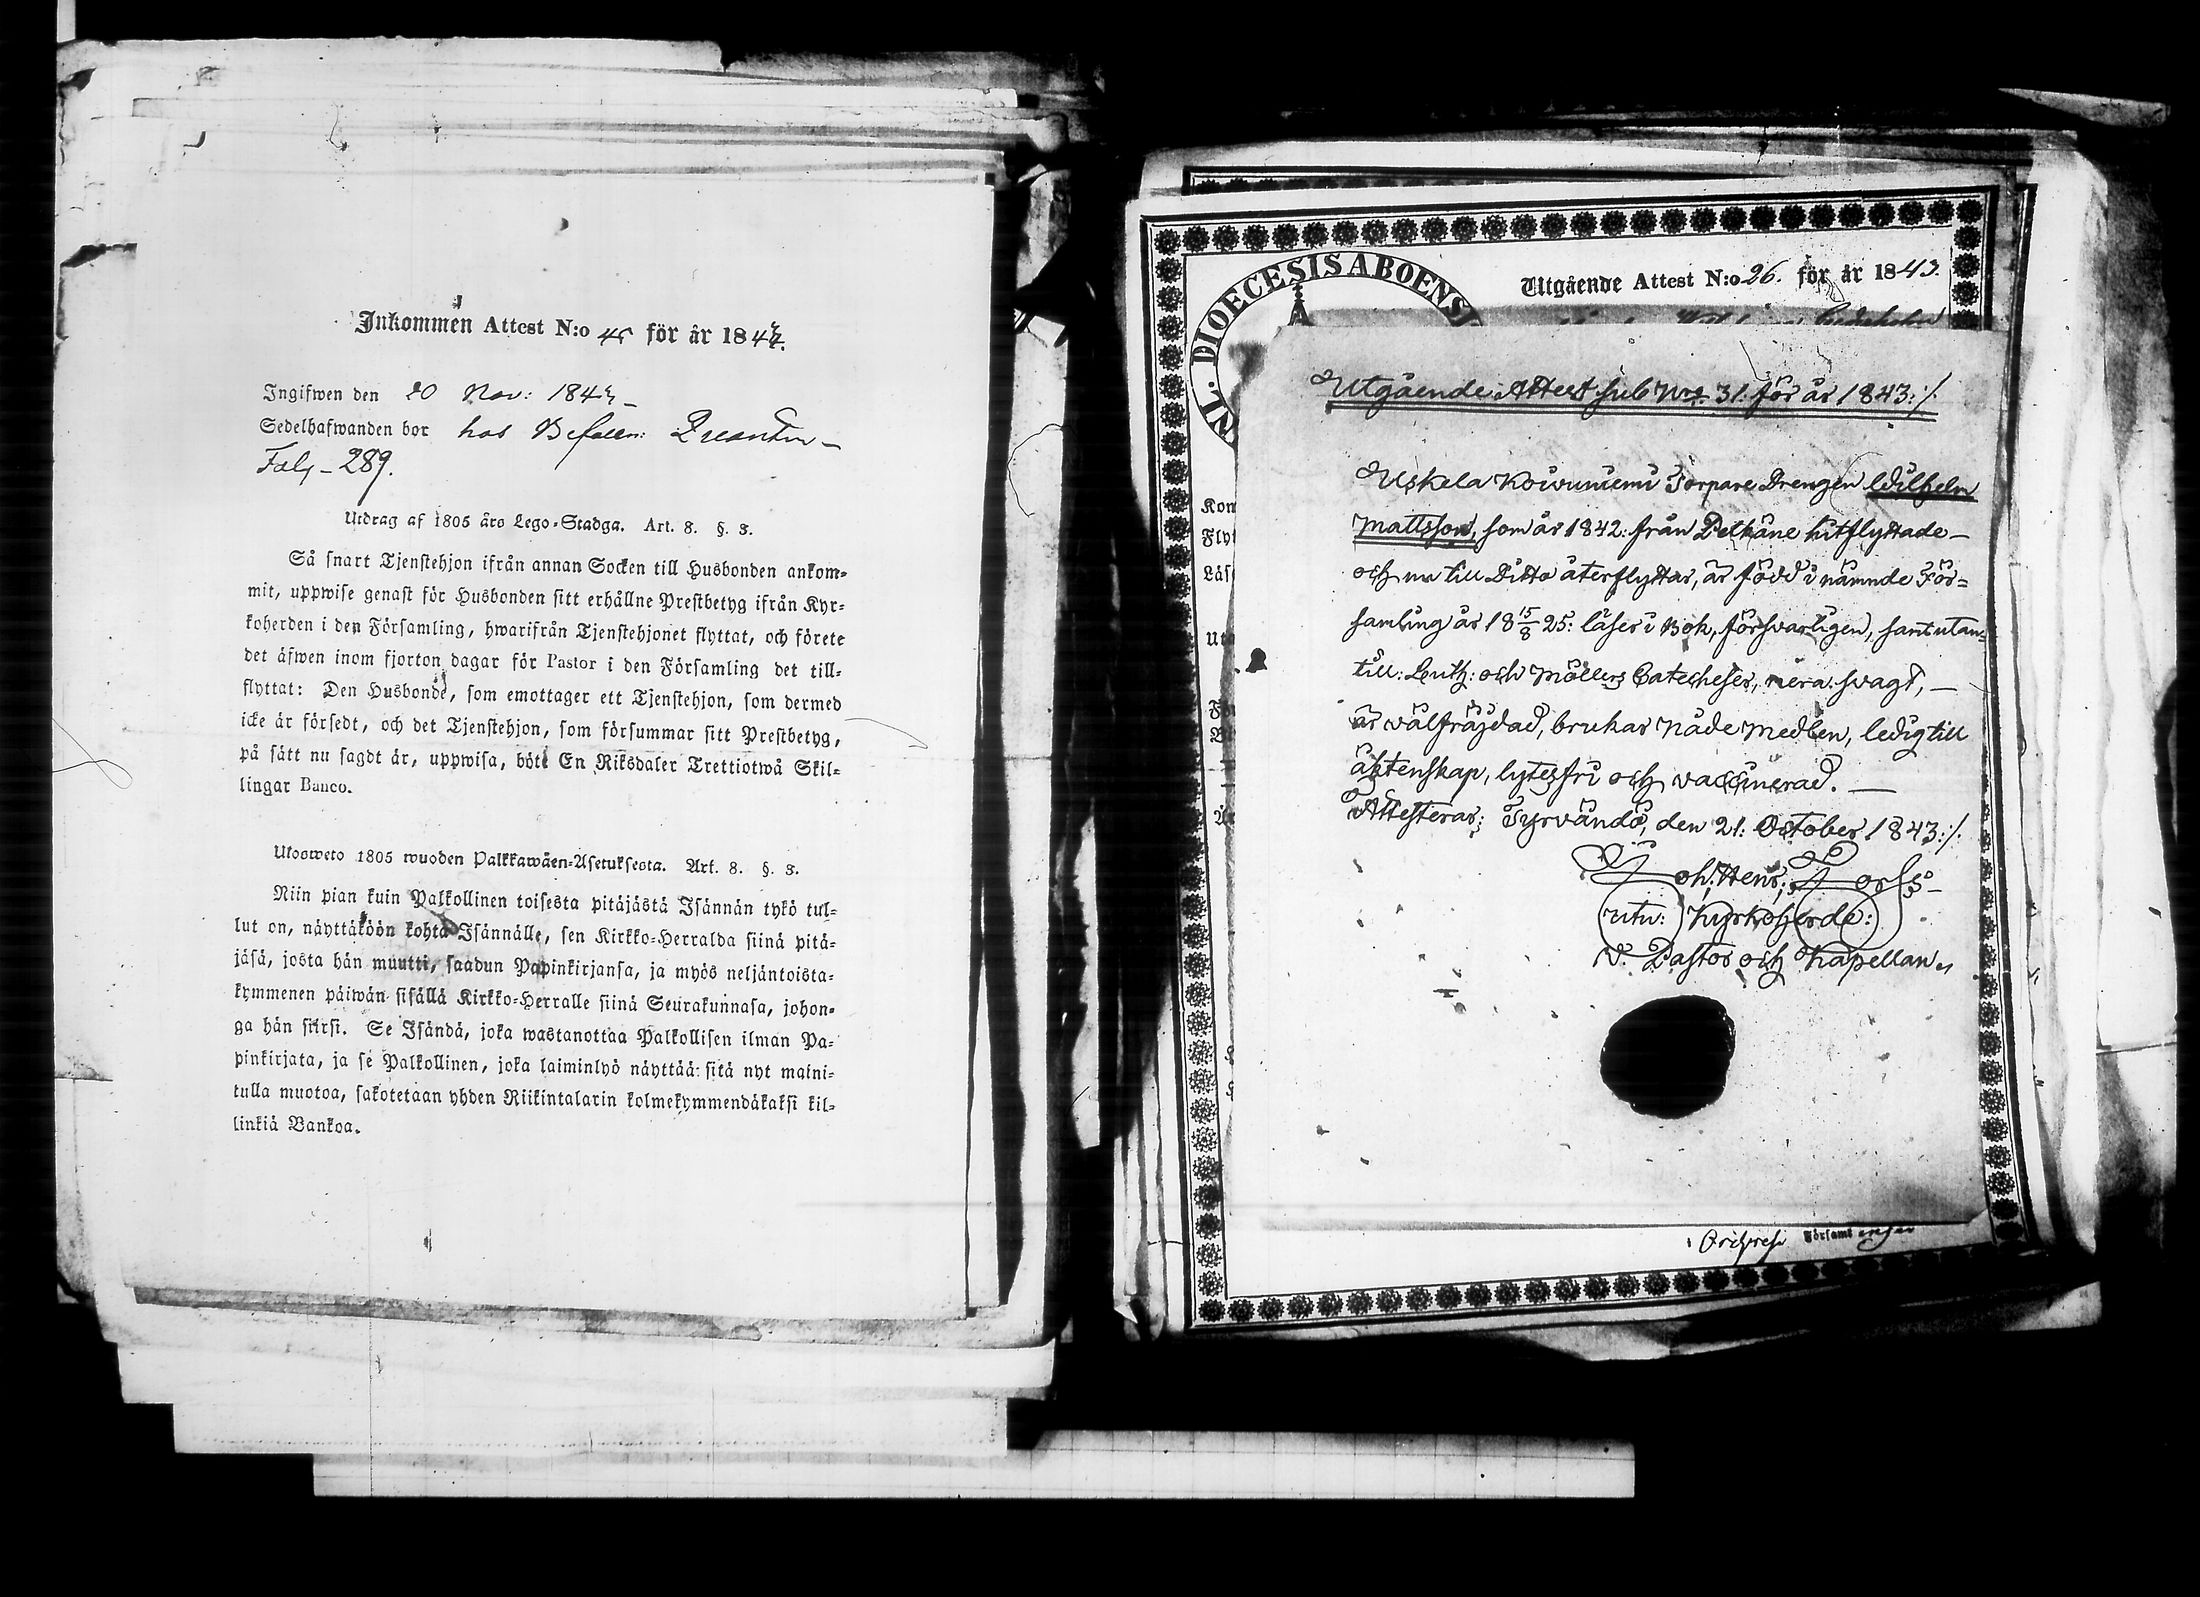 Inkommen Attest N:o 45 för år 1843.
Ingifwen den 20 Nov: 1843
Sedelhafwanden bor hos Befalln:
Fol: 289.
Utdrag af 1805 års Lego-Stadga. Art. 8. §. 3.
Så snart Tjenstehjon ifrån annan Socken till Husbonden ankom-
mit, uppwise genast för Husbonden sitt erhållne Prestbetyg ifrån Kyr-
koherden i den Församling, hwarifrån Tjenstehjonet flyttat, och förete
det äfwen inom fjorton dagar för Pastor i den Församling det till-
flyttat: Den Husbonde, som emottager ett Tjenstehjon, som dermed
icke är försedt, och det Tjenstehjon, som försummar sitt Prestbetyg,
på sätt nu sagdt är, uppwisa, böte En Riksdaler Trettiotwå Skil-
lingar Banco.
Ulosweto 1805 wuoden Palkkawäen-Asetuksesta. Art. 8. §. 3.
Niin pian kuin Palkollinen toisesta pitäjästä Isännän tykö tul-
lut on, näyttäköön kohta Isännälle, sen Kirkko-Herralda siinä pitä-
jäsä, josta hän muutti, saadun Papinkirjansa, ja myös neljäntoista-
kymmenen päiwän sisällä Kirkko-Herralle siinä Seurakunnasa, johon-
ga hän siirsi. Se Isändä, joka wastanottaa Palkollisen ilman Pa-
pinkirjata, ja se Palkollinen, joka laiminlyö näyttää sitä nyt maini-
tulla muotoa, sakotetaan yhden Riikintalarin kolmekymmendäkaksi kil-
linkiä Bankoa.
Utgående Attest N:o 26. för år 1843.
NL. DIOECESIS ABOENS
Utgående Attest sub Nro 31. för år 1843:/.
Uskela Koivuniemi Torpare Drengen Wilhelm
Mattsson, som år 1842: från Pelkäne hitflyttade
och nu till Ditto återflyttar, är född i nämnde För-
samling år 18 15/8 25: läser i Bok, försvarligen, samt utan-
till: Luth: och Möllers Catecheser, mera svagt,
är välfräjdad, brukar Nåde Medlen, ledig till
äktenskap, lytesfri och vaccinerad.
Attesteras; Tyrvändö, den 21: October 1843:/.
Joh: Henr:
utn: Kyrkoherde:
v. Pastor och Kapellan
Kon
Flyt
Läs
Ut
Församl